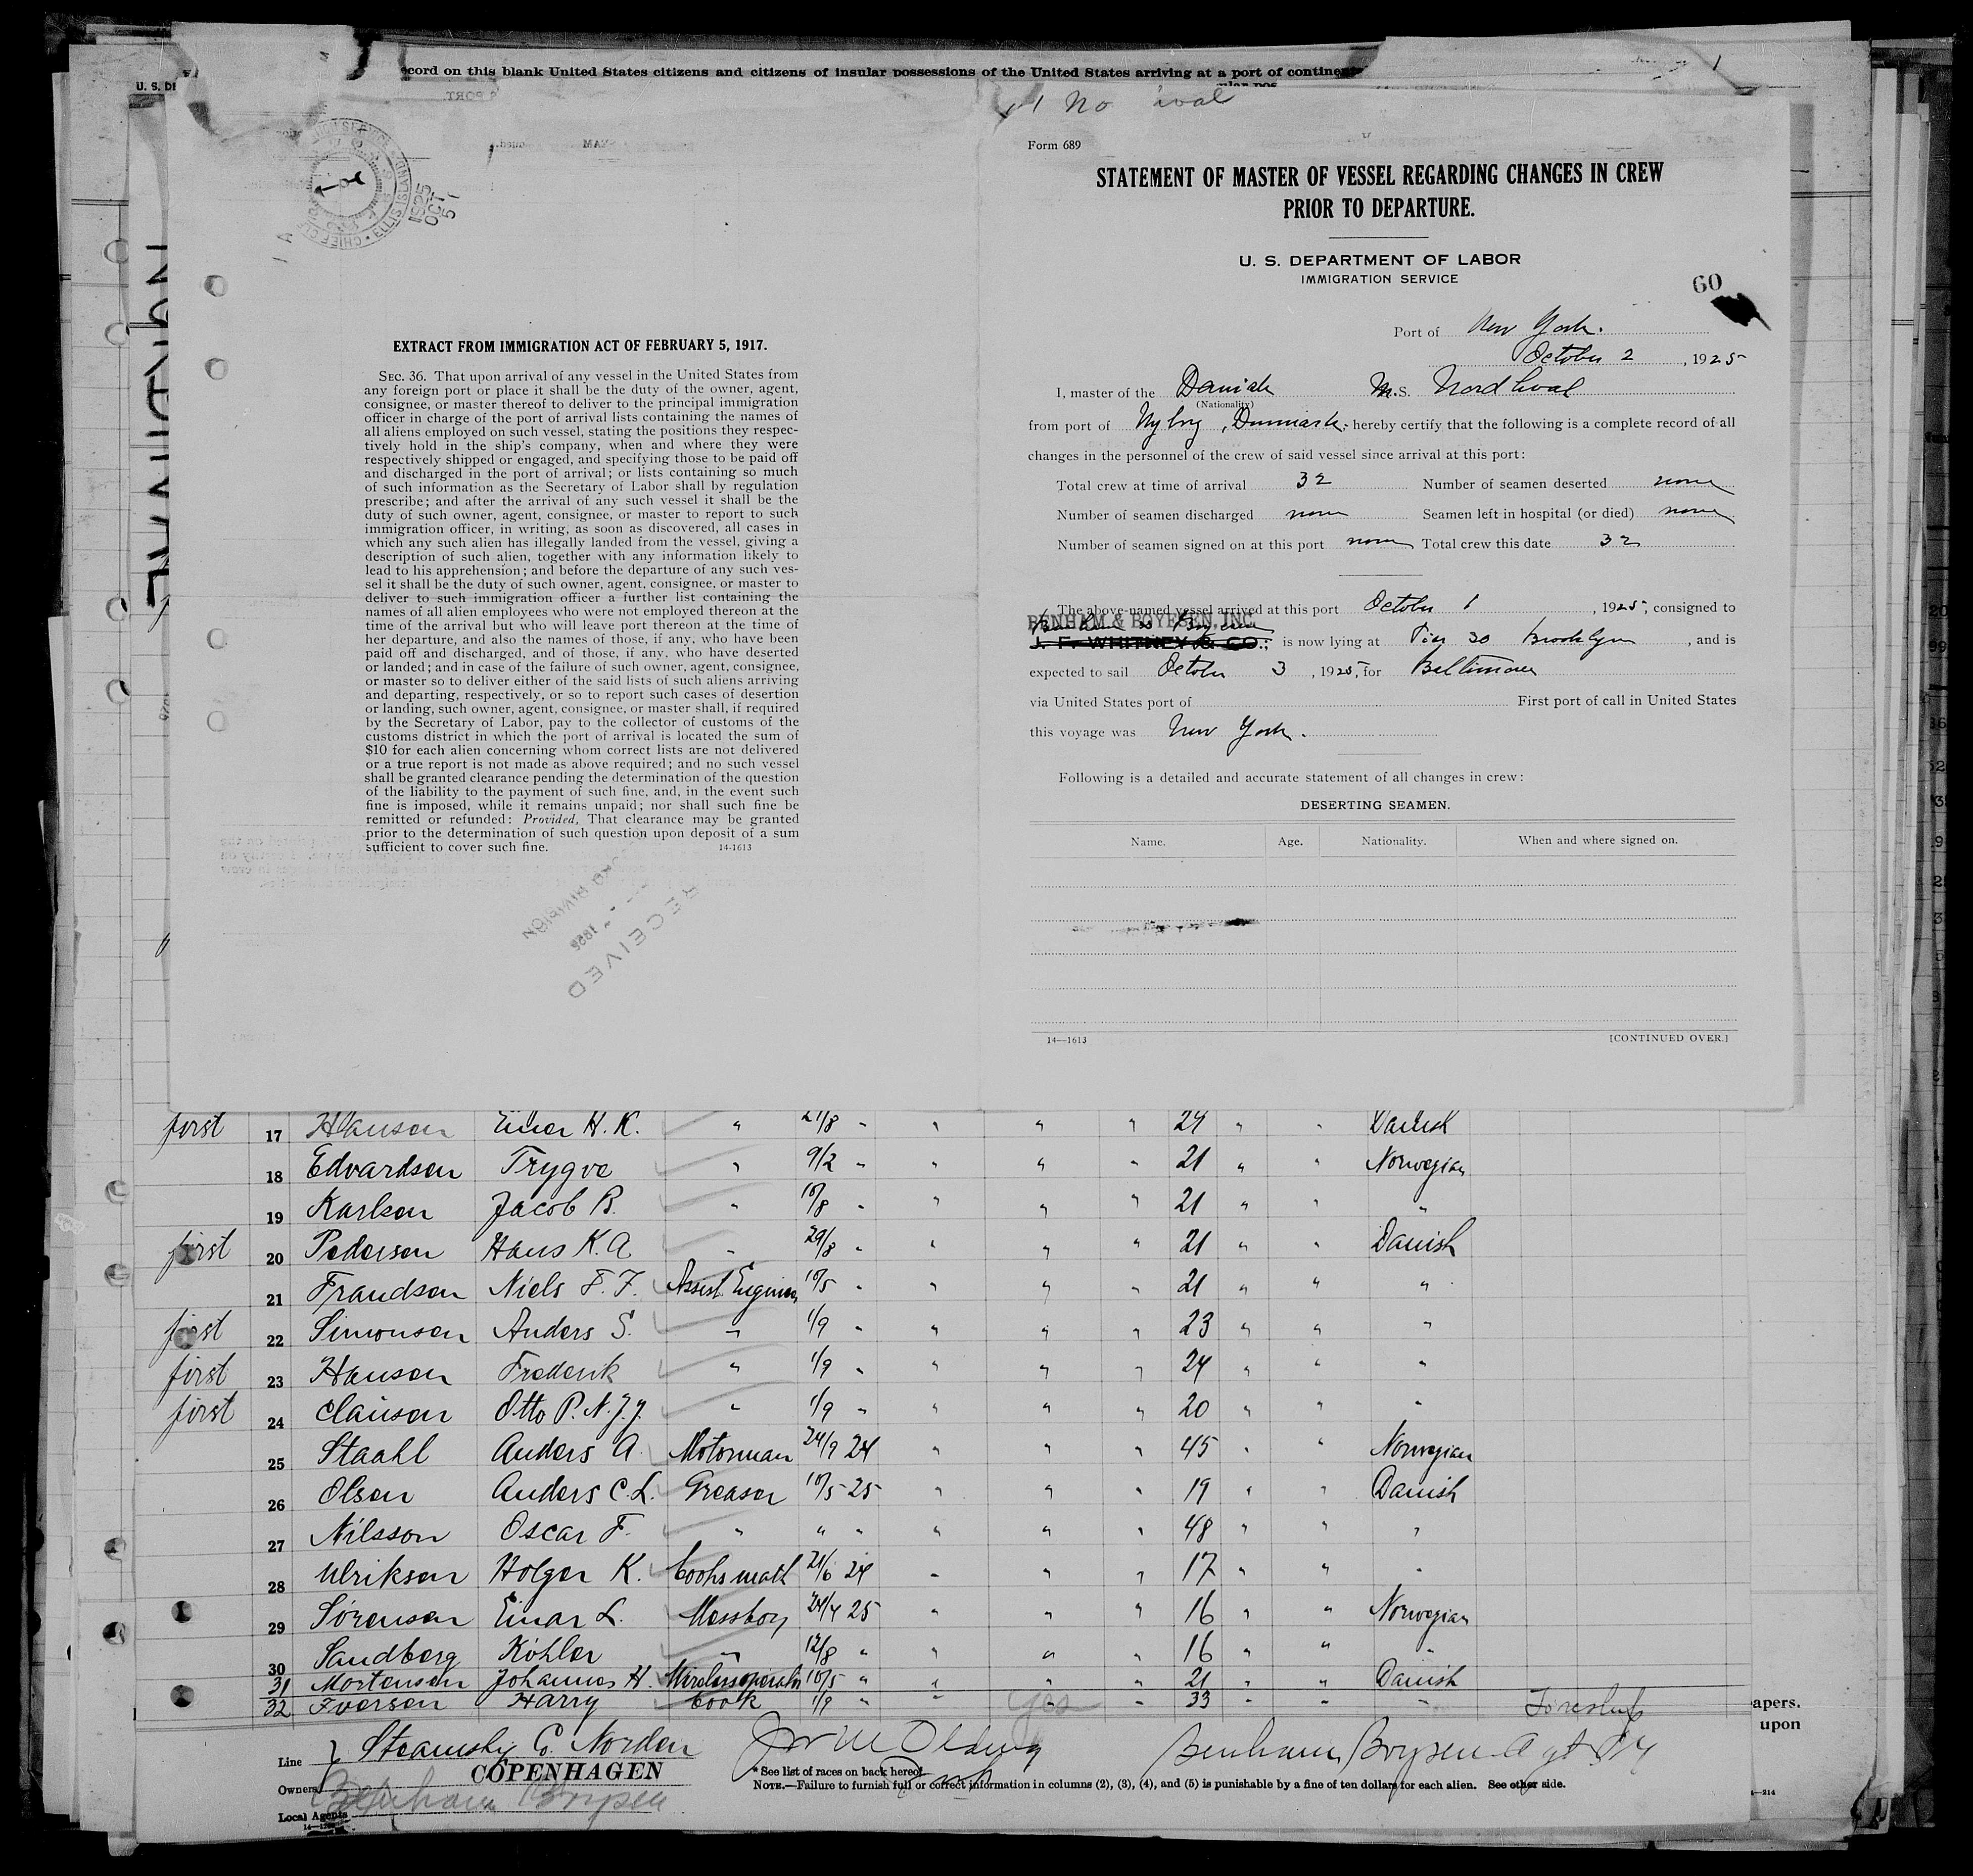 ecord on this blank United States citizens and citizens of insular possessions of the United States arriving at a port of contine
U. S. DE
No
Form 689
STATEMENT OF MASTER OF VESSEL REGARDING CHANGES IN CREW
PRIOR TO DEPARTURE.
U. S. DEPARTMENT OF LABOR
IMMIGRATION SERVICE
60
Port of New York.
October 2, 1925
I, master of the Danish M.S. Nordhval
(Nationality)
from port of Nyborg, Denmark. hereby certify that the following is a complete record of all
changes in the personnel of the crew of said vessel since arrival at this port:
Total crew at time of arrival 32 Number of seamen deserted none
Number of seamen discharged none Seamen left in hospital (or died) none
Number of seamen signed on at this port none Total crew this date 32
The above-named vessel arrived at this port October 1, 1925, consigned to
BENHAM & BOYESEN, INC.
J. F. WHITNEY & CO.; is now lying at Pier 30 Brooklyn, and is
expected to sail October 3, 1925, for Baltimore
via United States port of First port of call in United States
this voyage was New York.
Following is a detailed and accurate statement of all changes in crew:
DESERTING SEAMEN.
Name. Age. Nationality. When and where signed on.
14—1613 [CONTINUED OVER.]
CHIEF ELLIS ISLAND
1925
OCT
5
EXTRACT FROM IMMIGRATION ACT OF FEBRUARY 5, 1917.
SEC. 36. That upon arrival of any vessel in the United States from
any foreign port or place it shall be the duty of the owner, agent,
consignee, or master thereof to deliver to the principal immigration
officer in charge of the port of arrival lists containing the names of
all aliens employed on such vessel, stating the positions they respec-
tively hold in the ship's company, when and where they were
respectively shipped or engaged, and specifying those to be paid off
and discharged in the port of arrival; or lists containing so much
of such information as the Secretary of Labor shall by regulation
prescribe; and after the arrival of any such vessel it shall be the
duty of such owner, agent, consignee, or master to report to such
immigration officer, in writing, as soon as discovered, all cases in
which any such alien has illegally landed from the vessel, giving a
description of such alien, together with any information likely to
lead to his apprehension; and before the departure of any such ves-
sel it shall be the duty of such owner, agent, consignee, or master to
deliver to such immigration officer a further list containing the
names of all alien employees who were not employed thereon at the
time of the arrival but who will leave port thereon at the time of
her departure, and also the names of those, if any, who have been
paid off and discharged, and of those, if any, who have deserted
or landed; and in case of the failure of such owner, agent, consignee,
or master so to deliver either of the said lists of such aliens arriving
and departing, respectively, or so to report such cases of desertion
or landing, such owner, agent, consignee, or master shall, if required
by the Secretary of Labor, pay to the collector of customs of the
customs district in which the port of arrival is located the sum of
$10 for each alien concerning whom correct lists are not delivered
or a true report is not made as above required; and no such vessel
shall be granted clearance pending the determination of the question
of the liability to the payment of such fine, and, in the event such
fine is imposed, while it remains unpaid; nor shall such fine be
remitted or refunded: Provided, That clearance may be granted
prior to the determination of such question upon deposit of a sum
sufficient to cover such fine. 14-1613
DIVISION
RECEIVED
first 17 Hansen Einer H. K. " 21/8 " " " " 24 " " Danish
18 Edvardsen Trygve " 9/2 " " " " 21 " " Norwegian
19 Karlsen Jacob B. " 10/8 " " " " 21 " " "
first 20 Pedersen Hans K. A " 29/8 " " " " 21 " " Danish
21 Frandsen Niels F. F. Assist. Engineer 10/5 " " " " 21 " " "
first 22 Simonsen Anders S. " 1/9 " " " " 23 " " "
first 23 Hansen Frederik " 1/9 " " " " 24 " " "
first 24 Clausen Otto P. N. J. J. " 1/9 " " " " 20 " " "
25 Staahl Anders A. Motorman 24/9 24 " " " 45 " " Norwegian
26 Olsen Anders C. L. Greaser 10/5 25 " " " 19 " " Danish
27 Nilsson Oscar F. " " " " " " 48 " " "
28 Ulriksen Holger K. Cooks math 21/6 24 " " " 17 " " "
29 Sørensen Einar L. Messboy 24/4 25 " " " 16 " " Norwegian
30 Sandberg Köhler " 12/8 " " " " 16 " " "
31 Mortensen Johannes H. Wirelessoperator 10/5 " " " " 21 " " Danish
32 Iversen Harry Cook 1/9 " " yes " 33 " " "
apers.
upon
Line Steamship Co. Norden
COPENHAGEN
Owners
Local Agents Benham Boysen
Benham Boysen Agt NY
* See list of races on back hereof.
NOTE.—Failure to furnish full or correct information in columns (2), (3), (4), and (5) is punishable by a fine of ten dollars for each alien. See other side.
—214